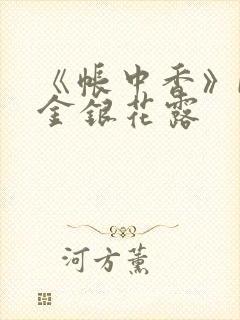 《帳中香》
金銀花露
河方薰